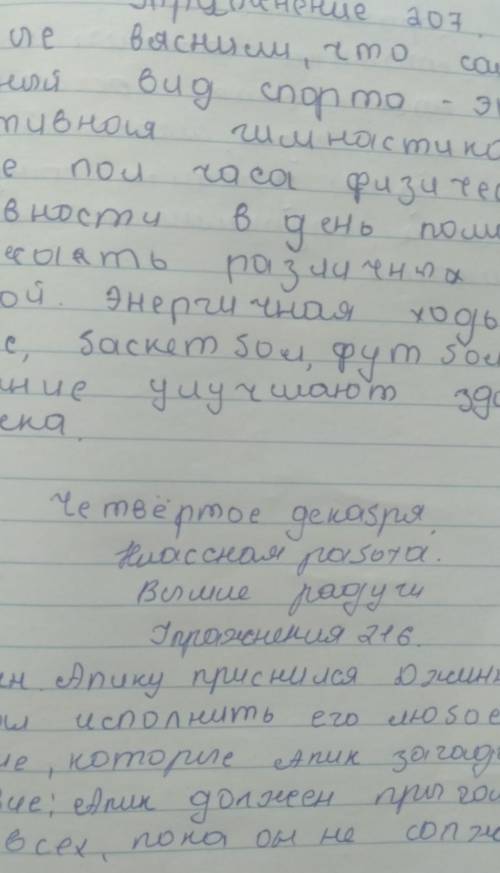 Упражнение 207.
вяснили, что
вид спорто - э
тивноя гимностико
е пол часа физиче
вности в день пом
жать различных
ой. Энергичная ходь
е, баскетбол, футбол
ние улучшают здо
ека.
Четвёртое декабря.
Классная работа.
Вымие радуги
Упражнения 216.
н Апику приснился Джин
ил исполнить его любое
ие, которые Апик загад
вие: Апик должеен пры
всех, пока он не